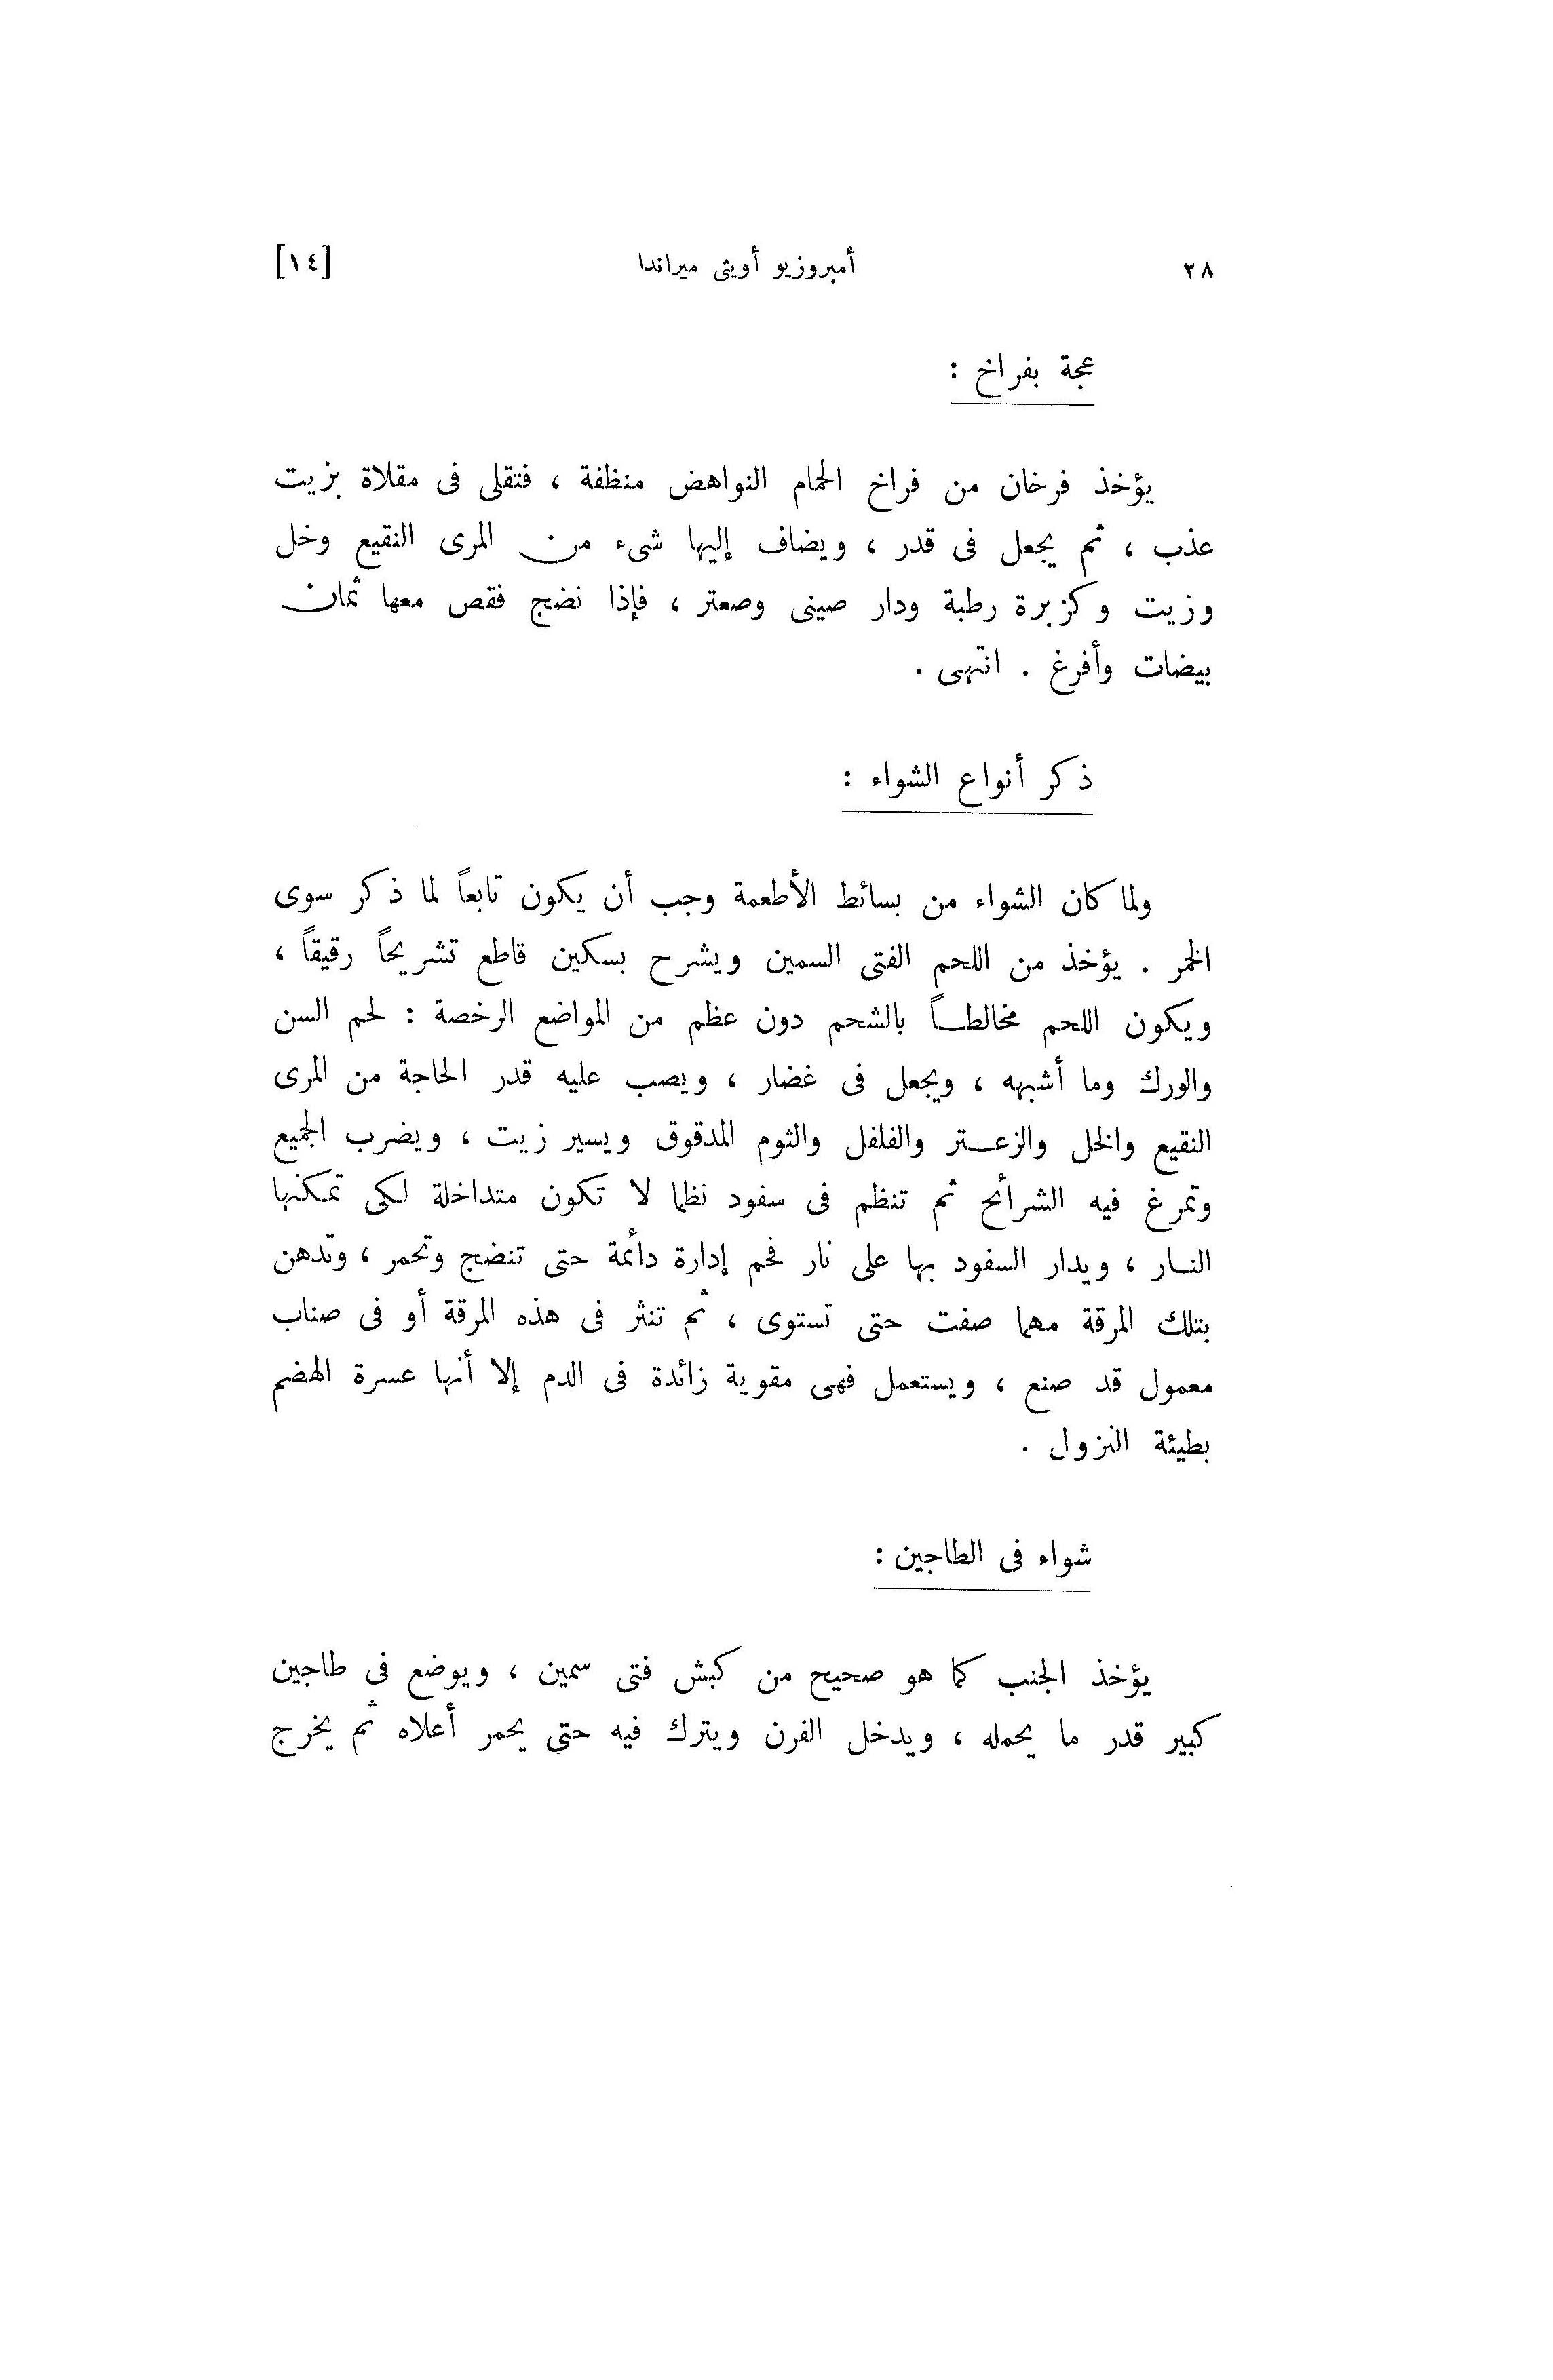 ٢٨ أمبروزيو أويثى ميراندا [١٤]
عجة بفراخ :
يؤخذ فرخان من فراخ الحمام النواهض منظفة ، فتقلى فى مقلاة بزيت
عذب ، ثم يجعل فى قدر ، ويضاف إليها شىء من المرى النقيع وخل
وزيت وكزبرة رطبة ودار صينى وصعتر ، فإذا نضج فقص معها ثمان
بيضات وأفرغ . انتهى .
ذكر أنواع الشواء :
ولما كان الشواء من بسائط الأطعمة وجب أن يكون تابعاً لما ذكر سوى
الخمر . يؤخذ من اللحم الفتى السمين ويشرح بسكين قاطع تشريحاً رقيقاً ،
ويكون اللحم مخالطـاً بالشحم دون عظم من المواضع الرخصة : لحم السن
والورك وما أشبهه ، ويجعل فى غضار ، ويصب عليه قدر الحاجة من المرى
النقيع والخل والزعـتر والفلفل والثوم المدقوق ويسير زيت ، ويضرب الجميع
وتمرغ فيه الشرائح ثم تنظم فى سفود نظما لا تكون متداخلة لكى تمكنها
النـار ، ويدار السفود بها على نار فحم إدارة دائمة حتى تنضج وتحمر ، وتدهن
بتلك المرقة مهما صفت حتى تستوى ، ثم تنثر فى هذه المرقة أو فى صناب
معمول قد صنع ، ويستعمل فهى مقوية زائدة فى الدم إلا أنها عسرة الهضم
بطيئة النزول .
شواء فى الطاجين :
يؤخذ الجنب كما هو صحيح من كبش فتى سمين ، ويوضع فى طاجين
كبير قدر ما يحمله ، ويدخل الفرن ويترك فيه حتى يحمر أعلاه ثم يخرج